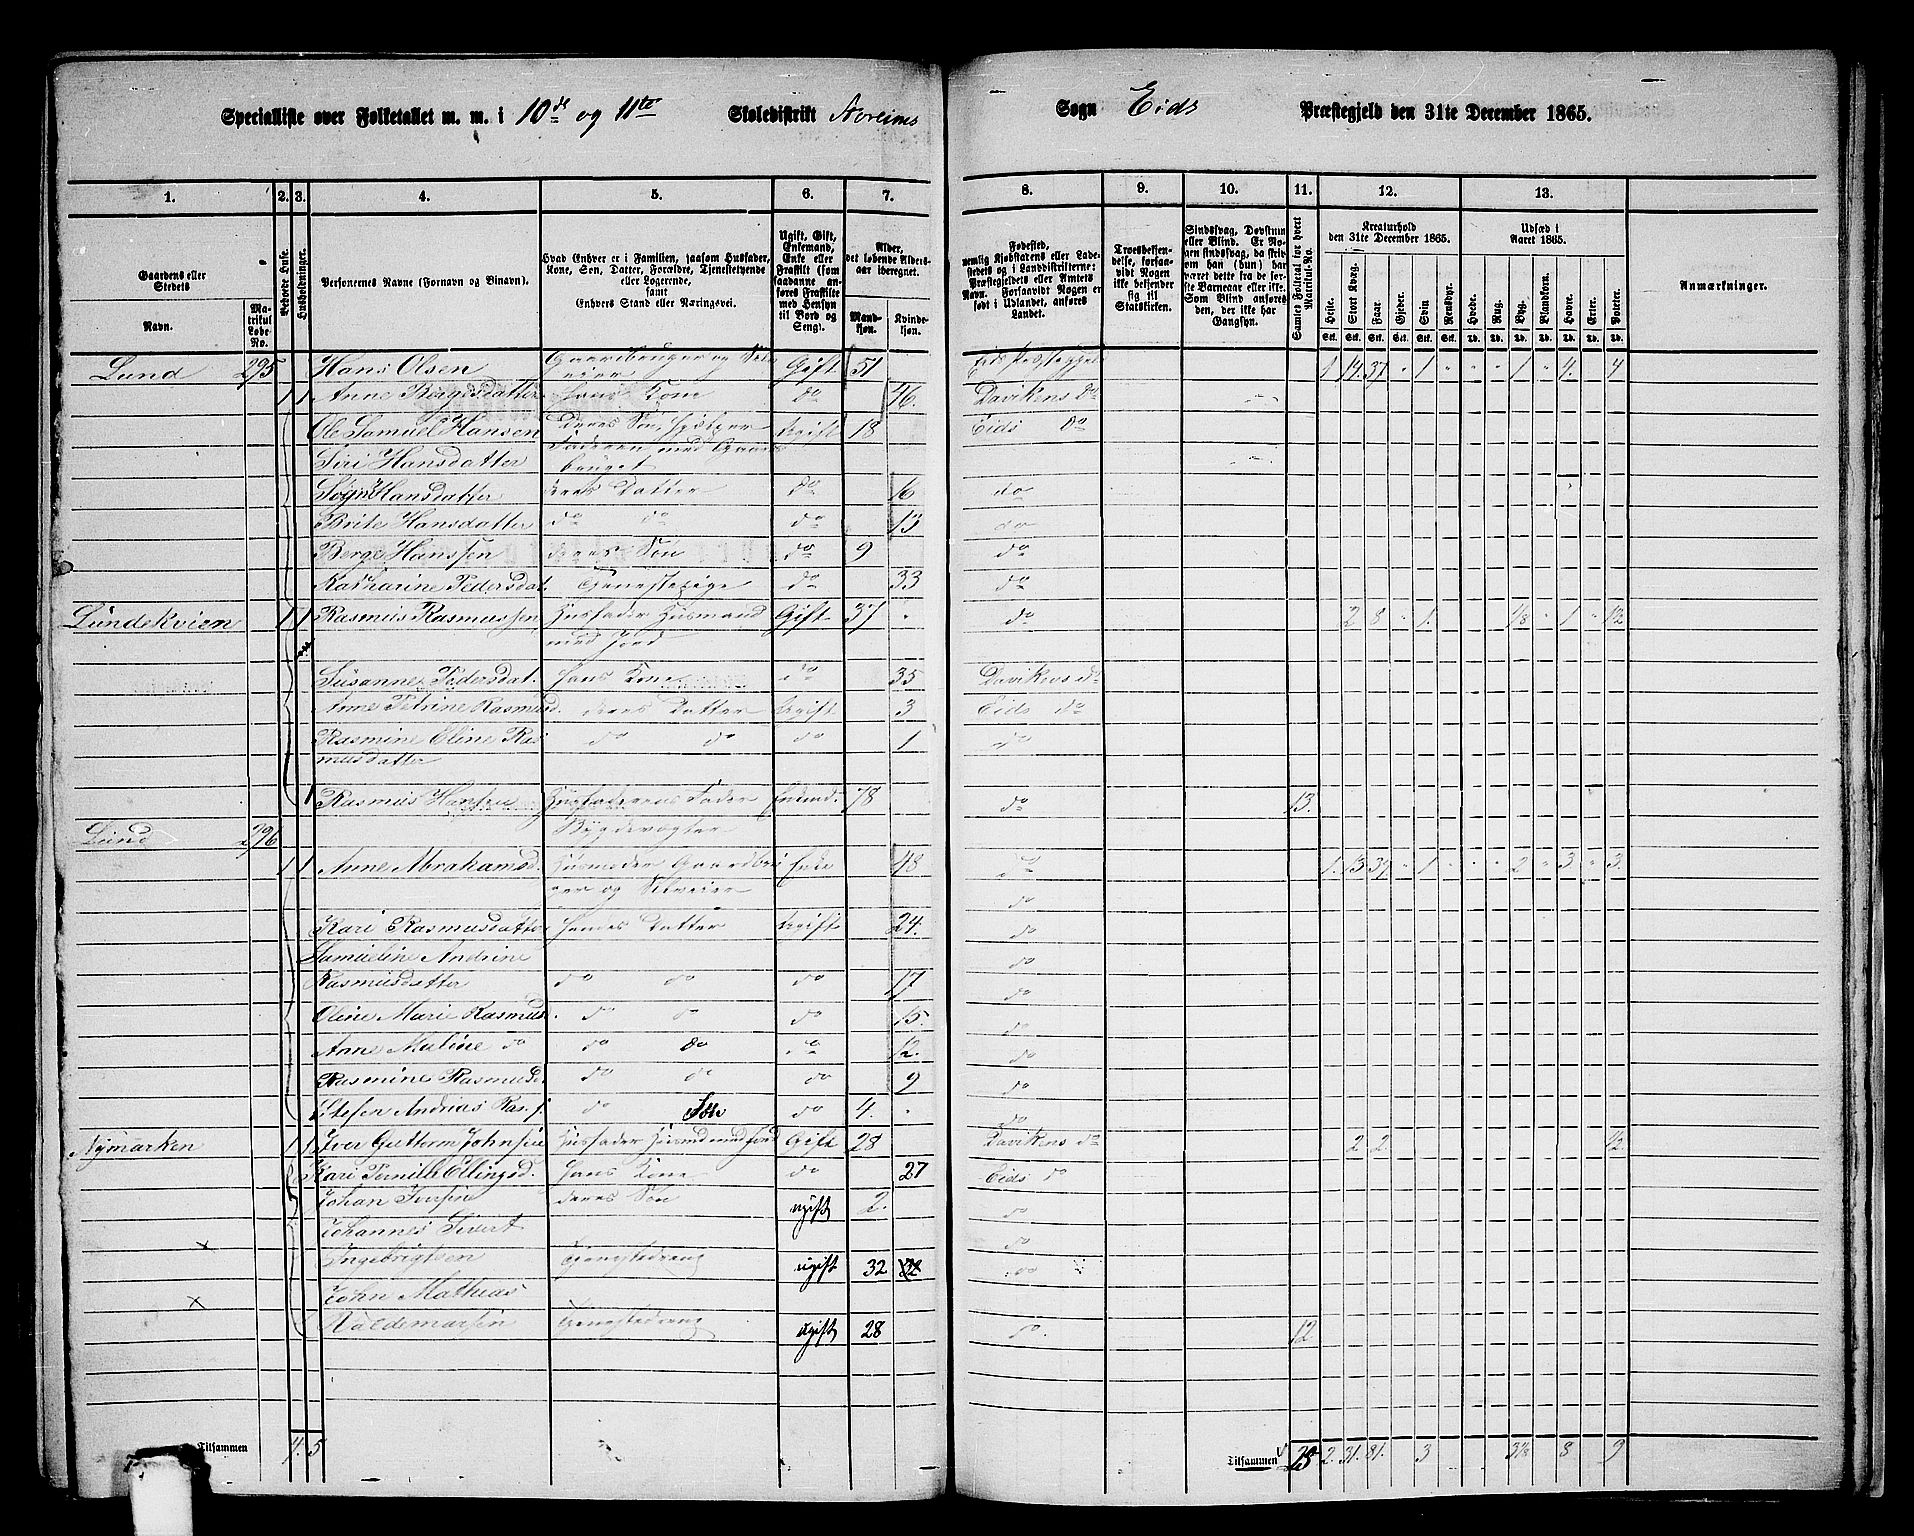 Specialliste over Folketallet m. m. i 10de og 11te Skoledistrikt Sogn Eids Præstegjeld den 31te December 1865.
1. 2. 3. 4. 5. 6. 7. 8. 9. 10. 11. 12. 13.
Gaardens eller Stedets Navn. Matrikul Løbe-No.
Beboede Huse.
Husholdninger.
Personernes Navne (Fornavn og Binavn).
Hvad Enhver er i Familien, saasom Husfader, Kone, Søn, Datter, Forældre, Tjenestetyende eller Logerende, samt Enhvers Stand eller Næringsvei.
Ugift, Gift, Enkemand, Enke eller Fraskilt (som saadanne anføres Fraskilte med Hensyn til Bord og Seng).
Alder, det løbende Alders-aar iberegnet. Mandkjøn. Kvindekjøn.
Troesbekjendelse, forsaavidt Nogen ikke bekjender sig til Statskirken.
Samlet Folketal for hvert Matrikul-No.
Kreaturhold den 31te December 1865.
Heste. Stort Kvæg. Faar. Gjeder. Sviin. Rensdyr.
Udsæd i Aaret 1865.
Hvede. Rug. Byg. Blandkorn. Havre. Erter. Poteter.
Anmærkninger.
Lund 295 Hans Olsen Gift 51 1 14 37 " 1 " " " 1 " 4 " 4
1 1 Anne Bergesdatter hans Kone do 46 Davikens do
Ole Samuel Hansen deres Søn, hjælper Ugift 18 Eids do
Siri Hansdatter Faderen med Gaardsbruget
Hansdatter deres Datter do 16 do
Brite Hansdatter do do do 13 do
Berge Hanssen deres Søn do 9 do
Katharine Pedersdat. Tjenestepige do 33 do
Lundekvien 1 1 Rasmus Rasmussen Husfader Husmand Gift 37 do 2 8 " 1 1/8 " 1 " 1/2
med Jord
Susanne Pedersdat. hans Kone do 35 Davikens do
Anne Petrine Rasmusd. deres Datter Ugift 3 Eids do
Rasmine Eline Ras do do do 1 do
musdatter
1 Rasmus Hansen Husfaderens Fader Enkemd. 78 do 13.
Lund 296
1 1 Anne Abrahamsd. Husmoder Gaardbru Enke 48 do 1 13 37 " 1 " " " 2 " 3 " 3
ger og Selveier do
Kari Rasmusdatter hendes Datter Ugift 24. do
Samueline Andrine do
Rasmusdatter do do do 17 do
Oline Marie Rasmusd. do do do 15. do
Anne Maline do do do do 12. do
Rasmine Rasmusd. do do do 9 do
Stefen Andreas Ras.s. do Søn do 4. do
Nymarken 1 1 Iver Guttorm Johnsen Husfader Husmd med Jord Gift 28 Davikens do 2 2 1/2
Kari Pernille Ellingsd. hans Kone do 27 Eids do
Johan Iversen deres Søn ugift 2. do
Johannes Sivert do
Ingebrigtsen Tjenestedreng ugift 32 do
John Mathias
Valdemarsen Tjenestedreng ugift 28 do. 12
Tilsammen 4. 5 Tilsammen 25 2. 31. 81. 3 3 1/8 8 9